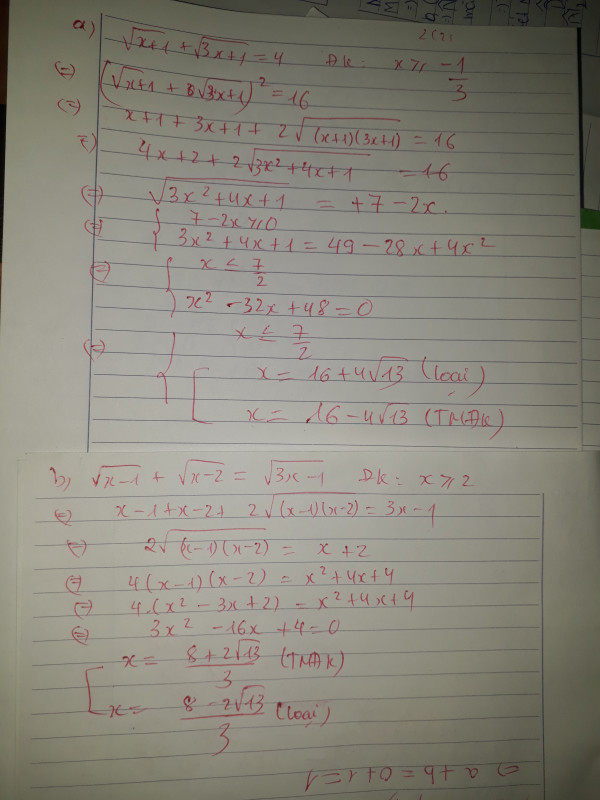 2(2)
a) √x+1 + √3x+1 = 4 ĐK: x ≥ -1/3
(=) (√x+1 + 8√3x+1)² = 16
(=) x+1 + 3x+1 + 2√(x+1)(3x+1) = 16
(=) 4x+2 + 2√3x²+4x+1 = 16
(=) √3x²+4x+1 = +7-2x.
(=) { 7-2x ≥ 0
3x²+4x+1 = 49-28x+4x²
(=) { x ≤ 7/2
x² - 32x + 48 = 0
(=) { x ≤ 7/2
[ x = 16+4√13 (loại)
x = 16-4√13 (TMĐK)
b, √x-1 + √x-2 = √3x-1 ĐK: x ≥ 2
(=) x-1+x-2+ 2√(x-1)(x-2) = 3x-1
(=) 2√(x-1)(x-2) = x+2
(=) 4(x-1)(x-2) = x²+4x+4
(=) 4.(x²-3x+2) = x²+4x+4
(=) 3x² - 16x + 4 = 0
[ x = 8+2√13/3 (TMĐK)
x = 8-2√13/3 (loại)
=) a+b = 0+1 = 1